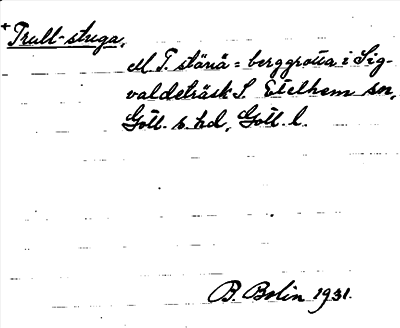 + Trull-stuga,
M T. stäuä = berggrotta i Sig-
valdeträsk S. Etelhem sn,
Gotl. s. hd, Gotl. l.
B. Bolin 1931.